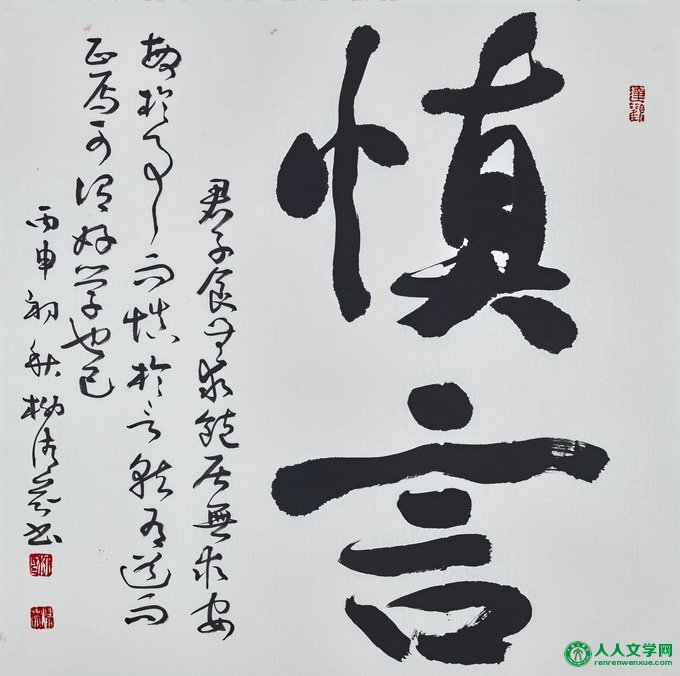 慎言
君子食无求飽居無求安
敏於事而慎於言就有道而
正焉可謂好學也已
丙申初秋柳清书
人人文学网
renrenwenxue.com